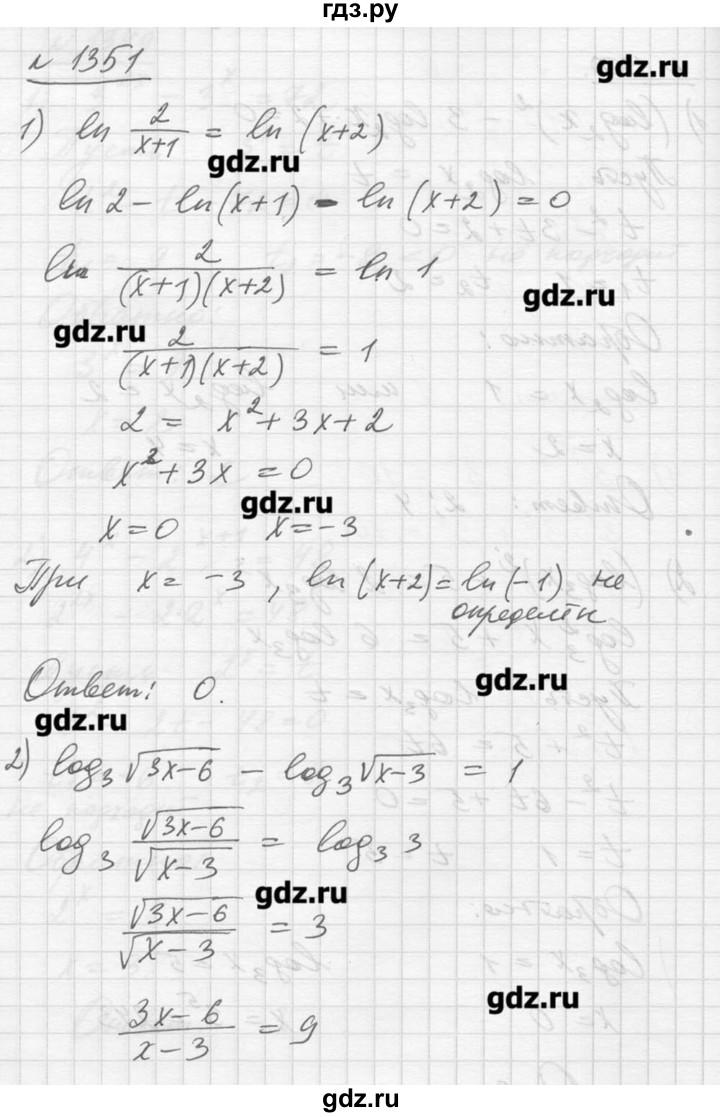 гдз.ру
№ 1351
gdz.ru
1) ln 2/(x+1) = ln (x+2)
gdz.ru
ln 2 - ln(x+1) - ln(x+2) = 0
ln 2/((x+1)(x+2)) = ln 1
gdz.ru
gdz.ru
2/((x+1)(x+2)) = 1
2 = x²+3x+2
x²+3x = 0
gdz.ru
x=0 x=-3
При x = -3, ln(x+2)=ln(-1) не
определён
Ответ: 0.
gdz.ru
gdz.ru
2) log₃√(3x-6) - log₃√(x-3) = 1
log₃ √(3x-6)/√(x-3) = log₃ 3
gdz.ru
√(3x-6)/√(x-3) = 3
gdz.ru
(3x-6)/(x-3) = 9
gdz.ru